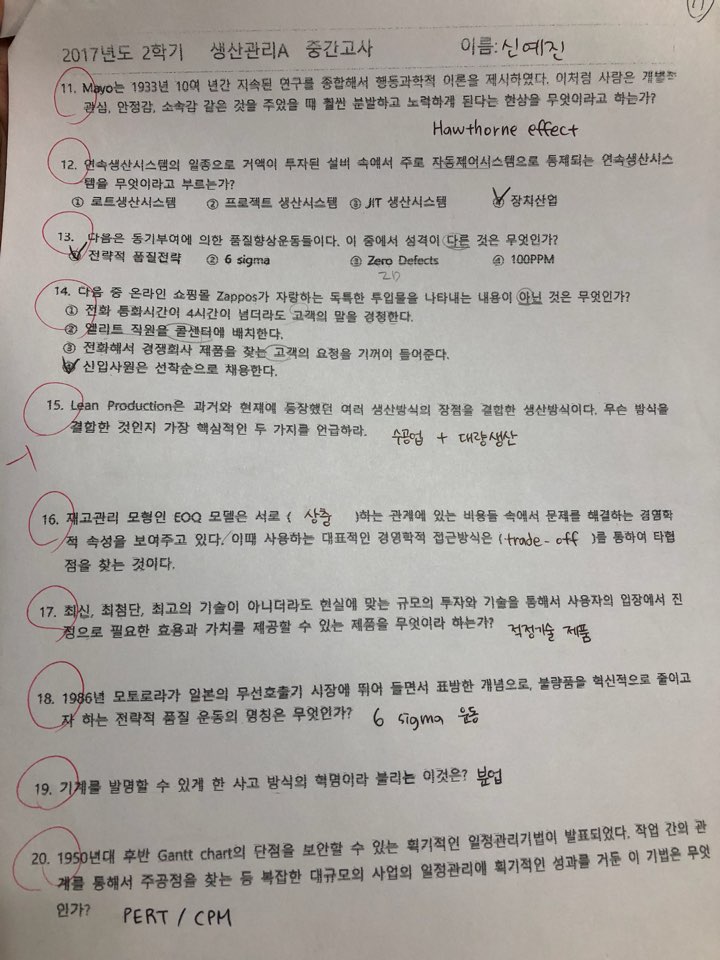 2017년도 2학기 생산관리A 중간고사 이름: 신예진
11. Mayo는 1933년 10여 년간 지속된 연구를 종합해서 행동과학적 이론을 제시하였다. 이처럼 사람은 개별적
관심, 안정감, 소속감 같은 것을 주었을 때 훨씬 분발하고 노력하게 된다는 현상을 무엇이라고 하는가?
Hawthorne effect
12. 연속생산시스템의 일종으로 거액이 투자된 설비 속에서 주로 자동제어시스템으로 통제되는 연속생산시스
템을 무엇이라고 부르는가?
① 로트생산시스템 ② 프로젝트 생산시스템 ③ JIT 생산시스템 ④ 장치산업
13. 다음은 동기부여에 의한 품질향상운동들이다. 이 중에서 성격이 다른 것은 무엇인가?
① 전략적 품질전략 ② 6 sigma ③ Zero Defects ④ 100PPM
ZD
14. 다음 중 온라인 쇼핑몰 Zappos가 자랑하는 독특한 투입물을 나타내는 내용이 아닌 것은 무엇인가?
① 전화 통화시간이 4시간이 넘더라도 고객의 말을 경청한다.
② 엘리트 직원을 콜센터에 배치한다.
③ 전화해서 경쟁회사 제품을 찾는 고객의 요청을 기꺼이 들어준다.
④ 신입사원은 선착순으로 채용한다.
15. Lean Production은 과거와 현재에 등장했던 여러 생산방식의 장점을 결합한 생산방식이다. 무슨 방식을
결합한 것인지 가장 핵심적인 두 가지를 언급하라. 수공업 + 대량생산
16. 재고관리 모형인 EOQ 모델은 서로 ( 상충 )하는 관계에 있는 비용들 속에서 문제를 해결하는 경영학
적 속성을 보여주고 있다. 이때 사용하는 대표적인 경영학적 접근방식은 (trade-off )를 통하여 타협
점을 찾는 것이다.
17. 최신, 최첨단, 최고의 기술이 아니더라도 현실에 맞는 규모의 투자와 기술을 통해서 사용자의 입장에서 진
정으로 필요한 효용과 가치를 제공할 수 있는 제품을 무엇이라 하는가? 적정기술 제품
18. 1986년 모토로라가 일본의 무선호출기 시장에 뛰어 들면서 표방한 개념으로, 불량품을 혁신적으로 줄이고
자 하는 전략적 품질 운동의 명칭은 무엇인가? 6 sigma 운동
19. 기계를 발명할 수 있게 한 사고 방식의 혁명이라 불리는 이것은? 분업
20. 1950년대 후반 Gantt chart의 단점을 보안할 수 있는 획기적인 일정관리기법이 발표되었다. 작업 간의 관
계를 통해서 주공정을 찾는 등 복잡한 대규모의 사업의 일정관리에 획기적인 성과를 거둔 이 기법은 무엇
인가? PERT / CPM